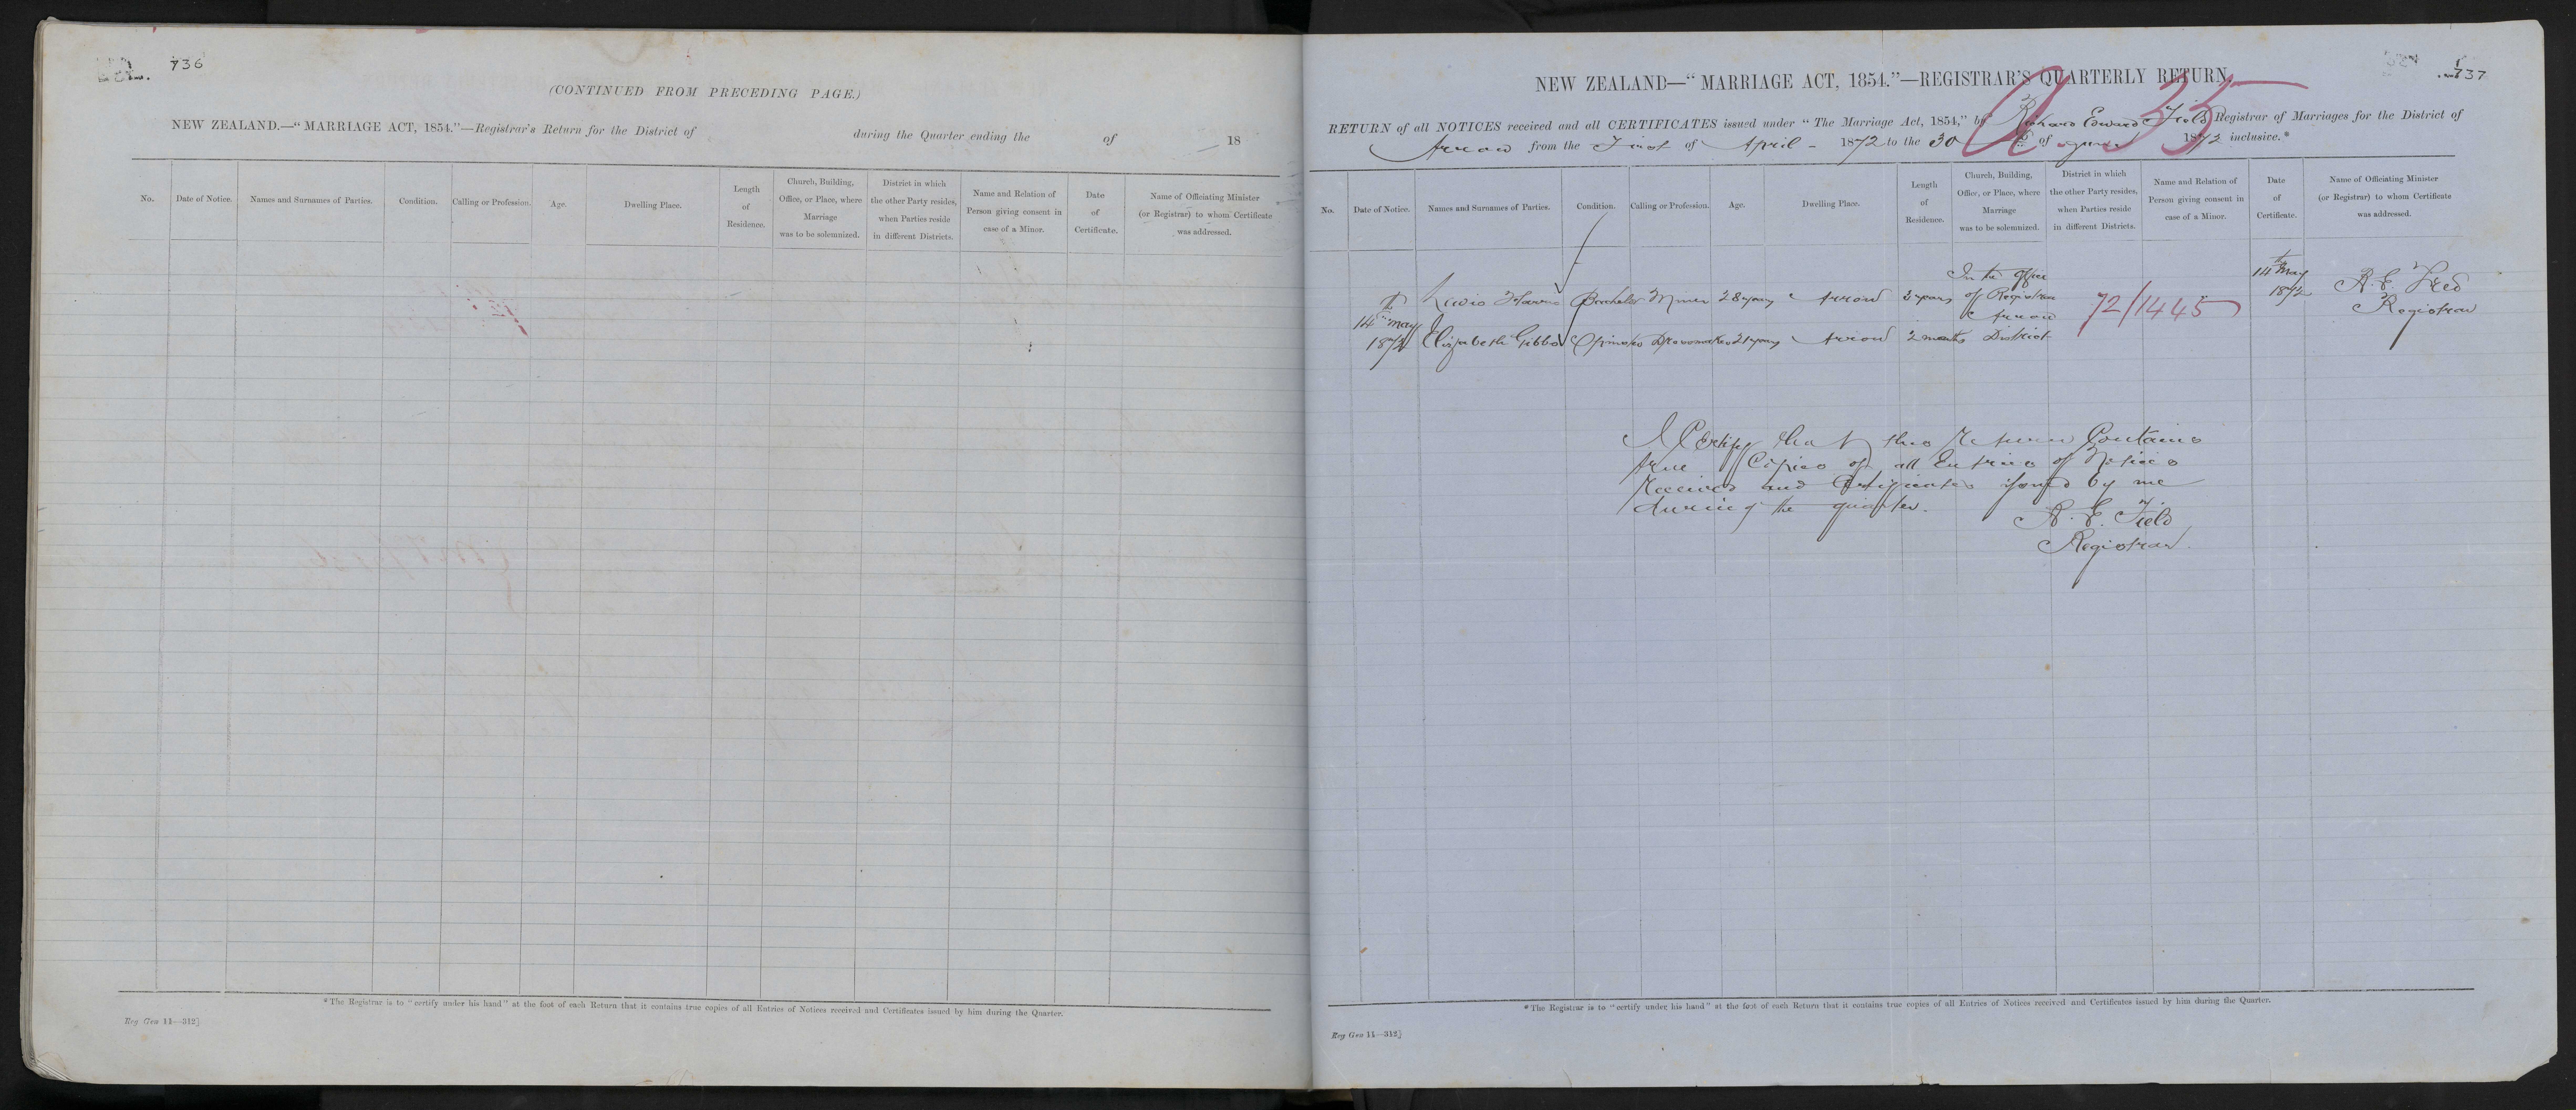 736
(CONTINUED FROM PRECEDING PAGE.)
NEW ZEALAND.—"MARRIAGE ACT, 1854."—Registrar's Return for the District of during the Quarter ending the of 18
No. Date of Notice. Names and Surnames of Parties. Condition. Calling or Profession. Age. Dwelling Place. Length of Residence. Church, Building, Office, or Place, where Marriage was to be solemnized. District in which the other Party resides, when Parties reside in different Districts. Name and Relation of Person giving consent in case of a Minor. Date of Certificate. Name of Officiating Minister (or Registrar) to whom Certificate was addressed.
*The Registrar is to "certify under his hand" at the foot of each Return that it contains true copies of all Entries of Notices received and Certificates issued by him during the Quarter.
Reg Gen 11—312]
737
NEW ZEALAND—"MARRIAGE ACT, 1854."—REGISTRAR'S QUARTERLY RETURN.
35
RETURN of all NOTICES received and all CERTIFICATES issued under "The Marriage Act, 1854," by Richard Edward Field Registrar of Marriages for the District of
Arrow from the First of April - 1872 to the 30 of June 1872 inclusive.*
No. Date of Notice. Names and Surnames of Parties. Condition. Calling or Profession. Age. Dwelling Place. Length of Residence. Church, Building, Office, or Place, where Marriage was to be solemnized. District in which the other Party resides, when Parties reside in different Districts. Name and Relation of Person giving consent in case of a Minor. Date of Certificate. Name of Officiating Minister (or Registrar) to whom Certificate was addressed.
14th May 1872 Lewis Harris Bachelor Miner 28 years Arrow 3 years In the Office of Registrar Arrow District 72/1445 14th May 1872 R. E. Field Registrar
Elizabeth Gibbs Spinster Dressmaker 21 years Arrow 2 months
I Certify that this Return Contains
true Copies of all Entries of Notices
Received and Certificates issued by me
during the quarter.
R. E. Field
Registrar.
*The Registrar is to "certify under his hand" at the foot of each Return that it contains true copies of all Entries of Notices received and Certificates issued by him during the Quarter.
Reg Gen 11—312]